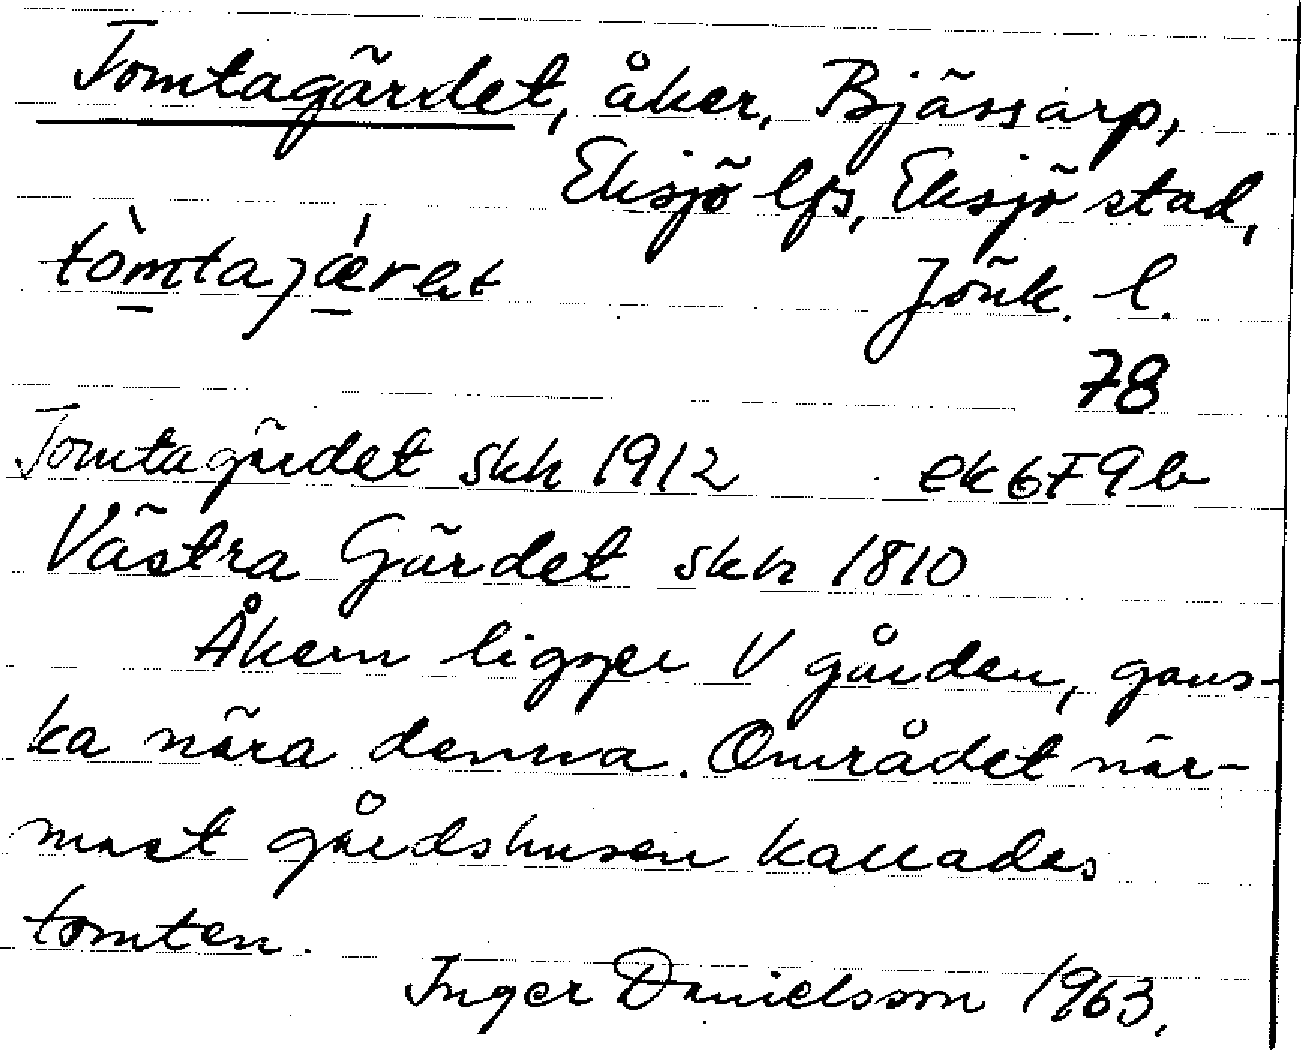 Tomtagärdet, åker, Bjässarp,
Eksjö lfs, Eksjö stad,
tòmtajǽret Jönk. l.
78
Tomtagärdet skh 1912 ek 6F9b
Västra Gärdet skh 1810
Åkern ligger V gården, gans-
ka nära denna. Området när-
mast gårdshusen kallades
tomten.
Inger Danielsson 1963.